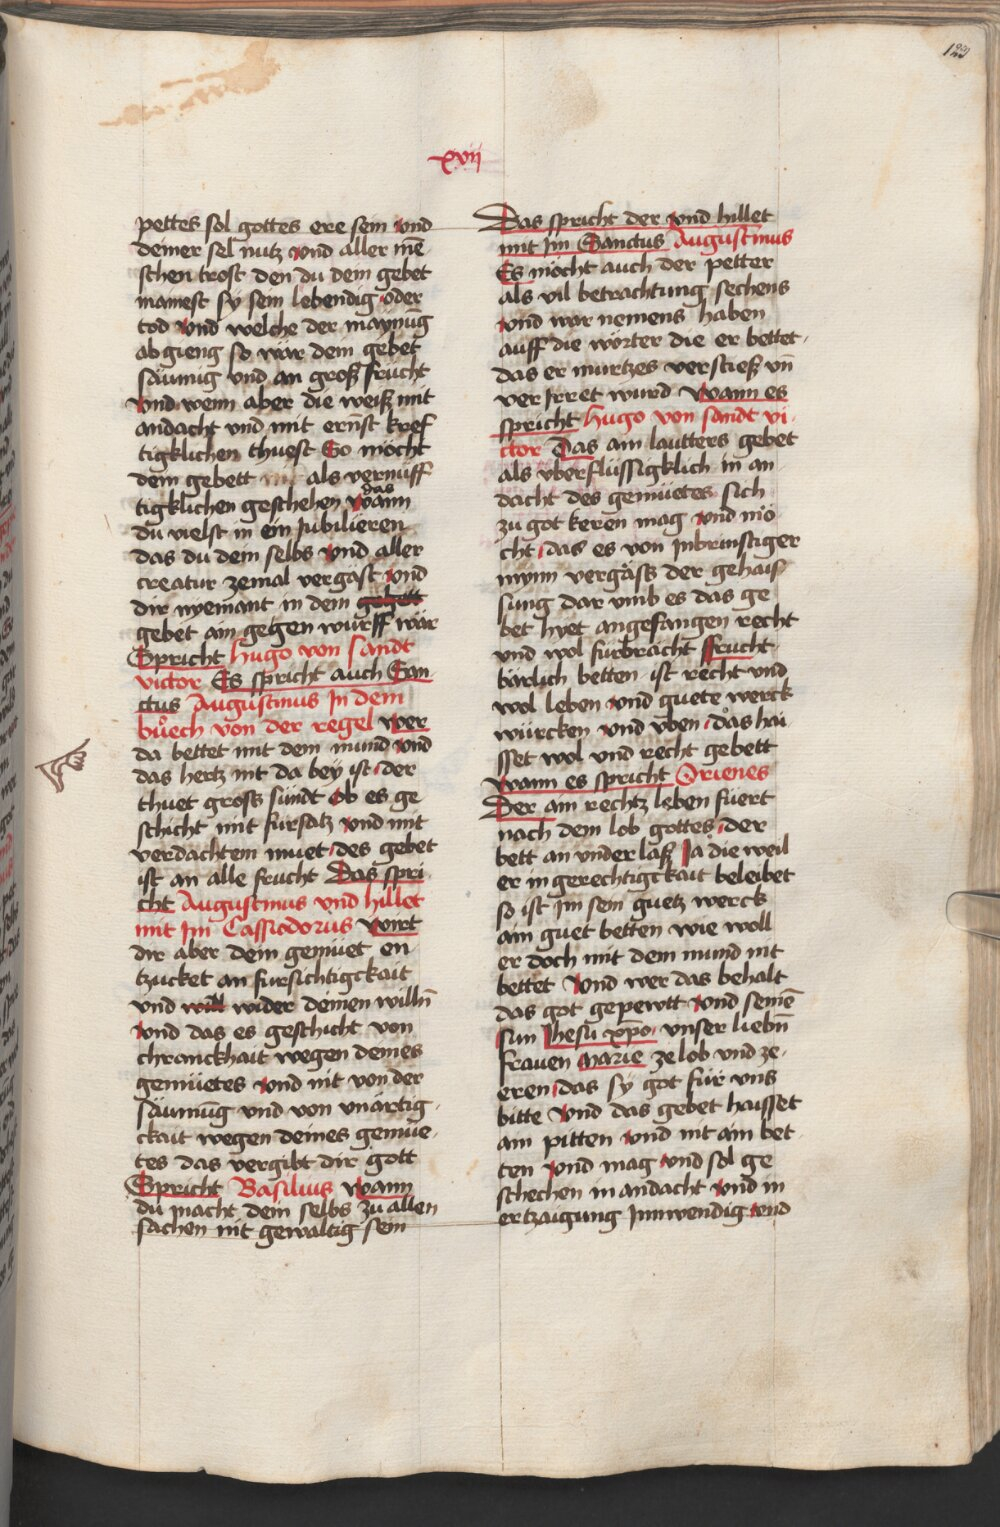 123
xvij
pettes sol gottes ere sein vnd
deiner sel nutz vnd aller mē
schen trost den du dein gebet
mainest sy sein lebendig oder
tod vnd welche der maynūg
abgieng so wär dein gebet
säumig vnd an groß frücht
vnd wenn aber die weiß mit
andacht vnd mit ernst kref
tigklichen thuest So möcht
dein gebett als vernuff
tigklichen geschehen das wann
du vielst in ein Jubilieren
das du dein selbs vnd aller
creatur zemal vergäst vnd
dir nyemant in dem gebett
gebet ain gegen wurff wär
Spricht hugo von sandt
victor Es spricht auch San
ctus Augustinus In dem
buͦech von der regel wer
da bettet mit dem mund vnd
das hertz nit da bey ist der
thuet gross sündt Ob es ge
schicht mit fursatz vnd mit
verdachtem muet des gebet
ist an alle frucht Das spri
cht Augustinus vnd hillet
mit Im Cassiodorus wirt
dir aber dein gemüet en
tzucket an fursichtigckait
vnd will wider deinen willn̄
vnd das es geschicht von
chranckhait wegen deines
gemüetes vnd nit von der
säumūg vnd von vnärtig
ckait wegen deines gemüe
tes das vergibt dir gott
Spricht Basilius wann
du macht dein selbs zu allen
sachen nit gewaltig sein
Das spricht der vnd hillet
mit Im Sanctus Augustinus
Es möcht auch der petter
als vil betrachtung sechens
vnd war nemens haben
auff die wörter die er bettet
das er nurtzes verstieß vn̄
ver Irret wurd wann es
spricht hugo von sandt vi
ctor Das ain lautters gebet
als vberflüssigklich in an
dacht des gemüetes sich
zu got keren mag vnd mö
cht das es von Inbrinstiger
mynn vergäss der gehais
sung dar vmb es das ge
bet hyet angefangen recht
vnd wol furbracht frucht
bärlich betten ist recht vnd
wol leben vnd guete werck
würcken vnd vben das hai
sset wol vnd recht gebett
wann es spricht Orienes
Der ain rechtz leben füert
nach dem lob gottes der
bett an vnder laß Ja die weil
er in gerechtigckait beleibet
so ist Im sein guetz werck
ain guet betten wie woll
er doch mit dem mund nit
bettet vnd wer das behalt
das got gepewtt vnd seinē
sun Jhesu xpo vnser liebn̄
frauen marie ze lob vnd ze
eren das sy got für vns
bitte vnd das gebet haisset
ain pitten vnd nit ain bet
ten vnd mag vnd sol ge
schechen in andacht vnd in
ertzaigung Innwendig vnd